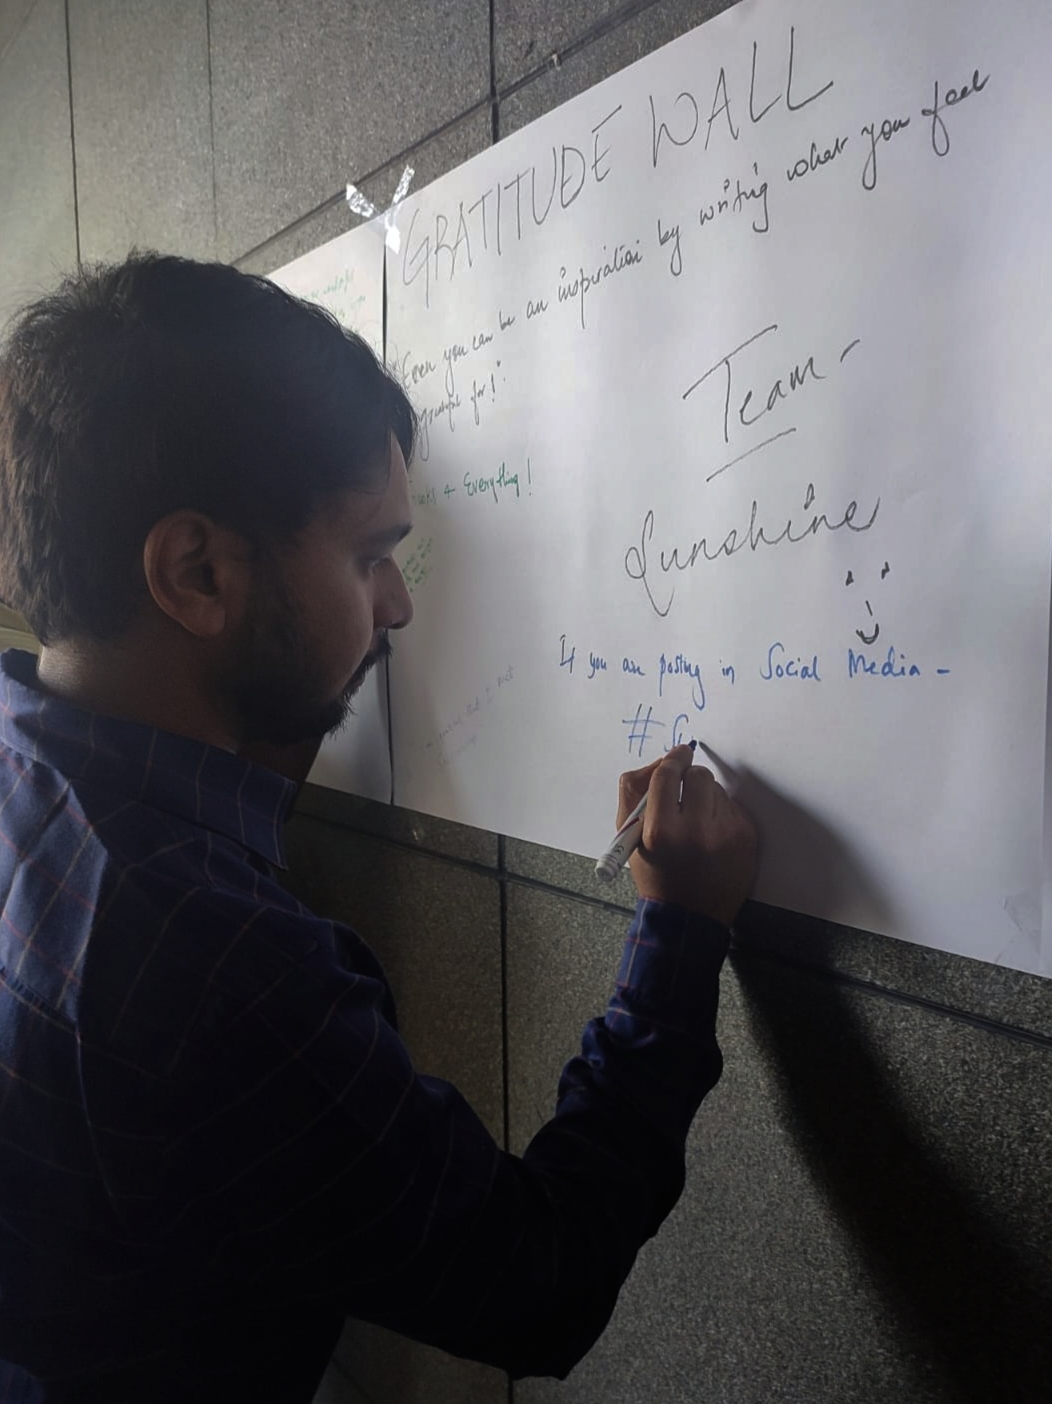 GRATITUDE WALL
"Even you can be an inspiration by writing what you feel
grateful for!"
Team -
Sunshine
4 Everything!
If you are posting in Social Media -
#Su